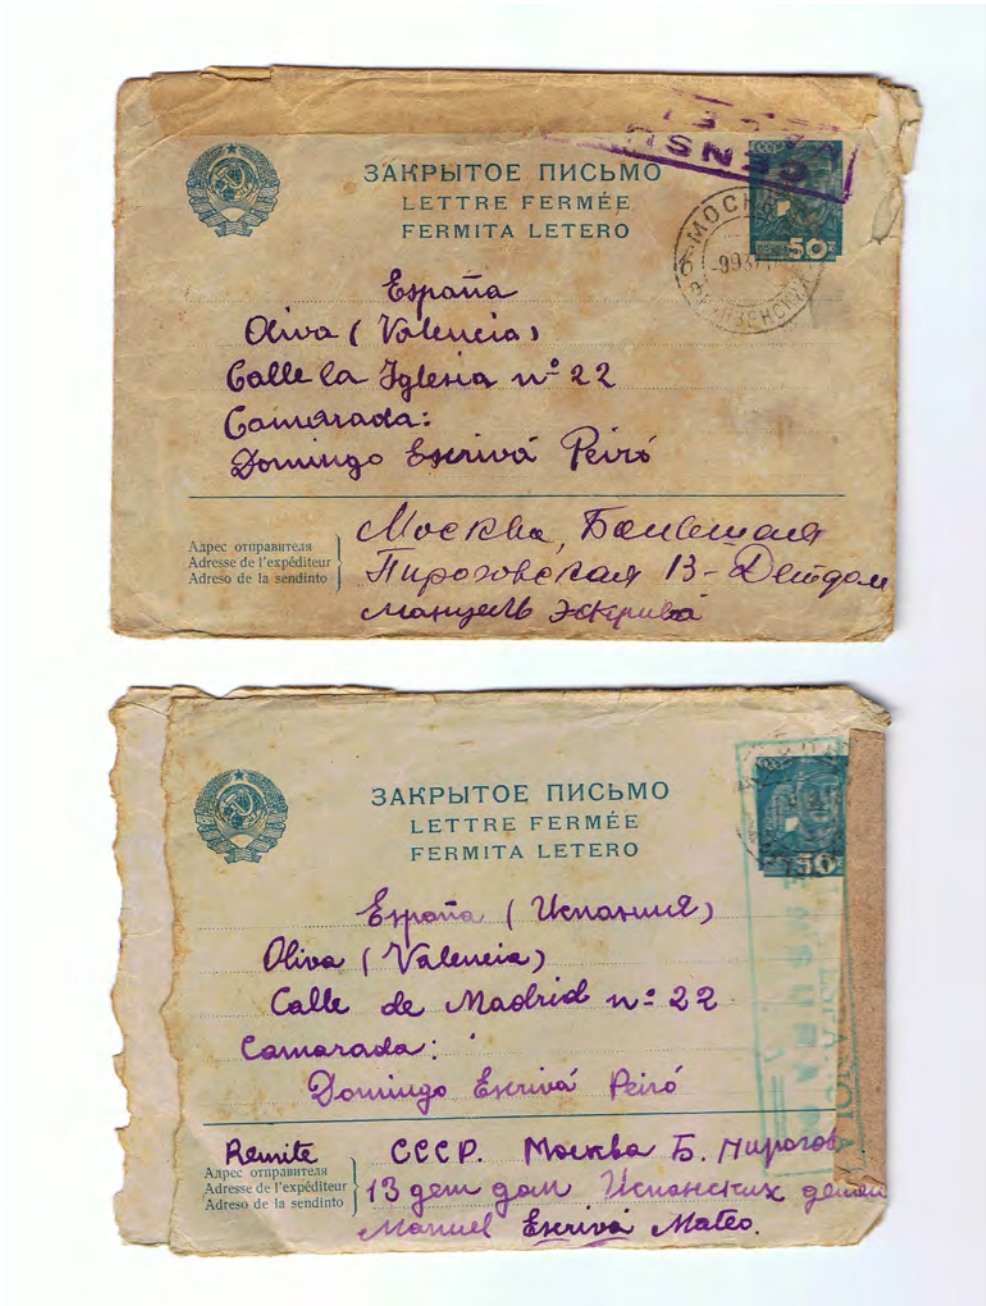 CENSU
СССР
50
МОСКВА
ЗАКРЫТОЕ ПИСЬМО
LETTRE FERMÉE
FERMITA LETERO
España
Oliva (Valencia)
Calle la Iglesia nº 22
Camarada:
Domingo Escrivá Peiró
Адрес отправителя
Adresse de l'expéditeur
Adreso de la sendinto
Москва, Большая
Пироговская 13 - Детдом
Мануель Эскрива
50
ЗАКРЫТОЕ ПИСЬМО
LETTRE FERMÉE
FERMITA LETERO
España (Испания)
Oliva (Valencia)
Calle de Madrid nº 22
Camarada:
Domingo Escrivá Peiró
Remite
Адрес отправителя
Adresse de l'expéditeur
Adreso de la sendinto
СССР. Москва Б. Пирогов
13 дет дом Испанских детей
Manuel Escrivá Mateo.